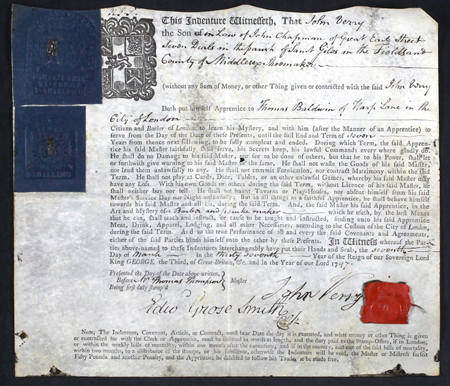 This Indenture Witnesseth, That John Verry
the Son in Law of John Chapman of Great Earl Street
Seven Dials in the parish of Saint Giles in the Fields and
County of Middlesex Shoemaker
(without any Sum of Money, or other Thing given or contracted with the said John Verry
Doth put himself Apprentice to Thomas Baldwin of Harp Lane in the
City of London
Citizen and Barber of London, to learn his Mystery, and with him (after the Manner of an Apprentice) to
serve from the Day of the Date of these Presents, until the full End and Term of seven
Years from thence next following, to be fully compleat and ended. During which Term, the said Apprentice
his said Master faithfully shall serve, his Secrets keep, his lawful Commands every where gladly do.
He shall do no Damage to his said Master, nor see to be done of others, but that he to his Power, shall let
or forthwith give warning to his said Master of the same. He shall not waste the Goods of his said Master,
nor lend them unlawfully to any. He shall not commit Fornication, nor contract Matrimony within the said
Term. He shall not play at Cards, Dice, Tables, or any other unlawful Games, whereby his said Master may
have any Loss. With his own Goods or others during the said Term, without Licence of his said Master, he
shall neither buy nor sell. He shall not haunt Taverns or Playhouses, nor absent himself from his said
Master's Service Day nor Night unlawfully: But in all things as a faithful Apprentice, he shall behave himself
towards his said Master and all his, during the said Term. And, the said Master his said Apprentice, in the
Art and Mystery of a Barber and which he useth, by the best Means
that he can, shall teach and instruct, or cause to be taught and instructed, finding unto his said Apprentice
Meat, Drink, Apparel, Lodging, and all other Necessaries, according to the Custom of the City of London,
during the said Term. And to the true Performance of all and every the said Covenants and Agreements,
either of the said Parties binds himself unto the other by these Presents. In Witness whereof the Parties
above-named to these Indentures interchangeably have put their Hands and Seals, the seventh
Day of March In the thirty seventh Year of the Reign of our Sovereign Lord
King GEORGE the Third, of Great-Britain, &c. and in the Year of our Lord 1797.
Presented the Day of the Date above-written,
Before Mr Thomas Thompson Master
Being first duly stamp'd
John Verry
Edwd Grose Smith
Note, The Indenture, Covenant, Article, or Contract, must bear Date the day it is executed, and what money or other thing is given
or contracted for with the Clerk or Apprentice, must be inserted in words at length, and the duty paid to the Stamp-Office, if in London,
or within the weekly bills of mortality, within one month after the execution; and if in the country, and out of the said bills of mortality,
within two months, to a distributor of the Stamps, or his substitute, otherwise the Indenture will be void, the Master or Mistress forfeit
Fifty Pounds and another Penalty, and the Apprentice be disabled to follow his Trade, or be made free.